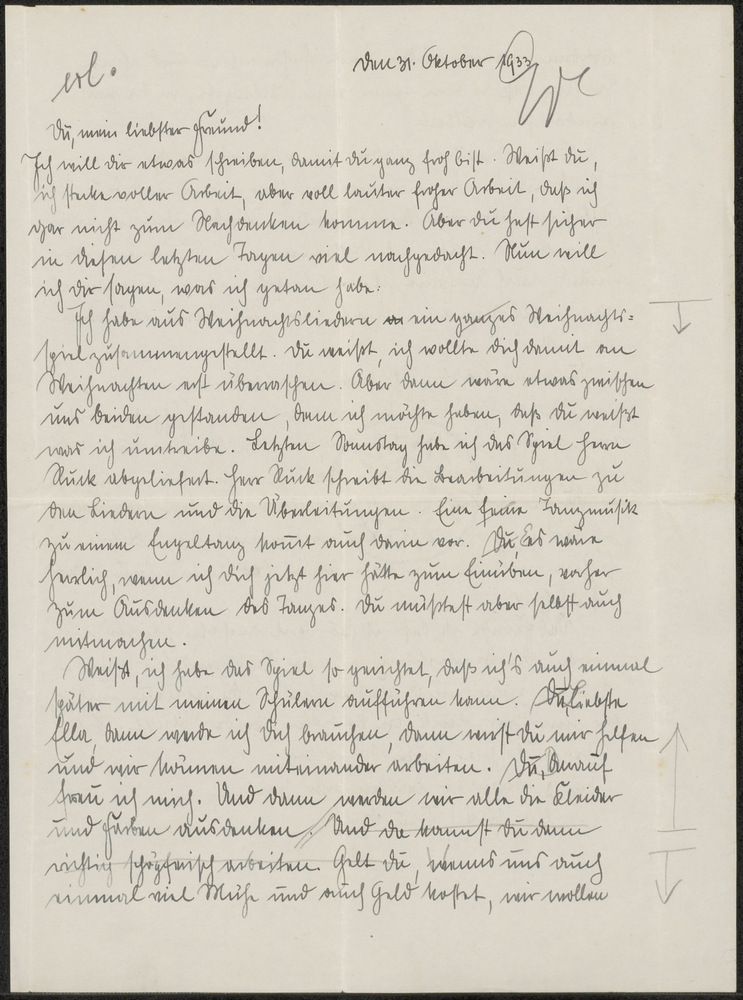 erl.
den 31. Oktober 1933
Du, mein liebster Freund!
Ich will dir etwas schreiben, damit du ganz froh bist. Weißt du,
ich stecke voller Arbeit, aber voll lauter froher Arbeit, daß ich
gar nicht zum Nachdenken komme. Aber du hast sicher
in diesen letzten Tagen viel nachgedacht. Nun will
ich dir sagen, was ich getan habe:
Ich habe aus Weihnachtsliedern ein ganzes Weihnachts-
spiel zusammengestellt. Du weißt, ich wollte dich damit an
Weihnachten erst überraschen. Aber dann wäre etwas zwischen
uns beiden gestanden, denn ich möchte haben, daß du weißt
was ich umtreibe. Letzten Samstag habe ich das Spiel Herrn
Ruck abgeliefert. Herr Ruck schreibt die Bearbeitungen zu
den Liedern und die Überleitungen. Eine feine Tanzmusik
zu einem Engeltanz kommt auch darin vor. Du, es wäre
herrlich, wenn ich dich jetzt hier hätte zum Einüben, vorher
zum Ausdenken des Tanzes. Du müßtest aber selbst auch
mitmachen.
Weißt, ich habe das Spiel so gerichtet, daß ich's auch einmal
später mit meinen Schülern aufführen kann. Du, Liebste
Ella, dann werde ich dich brauchen, dann wirst du mir helfen
und wir können miteinander arbeiten. Du, darauf
freu ich mich. Und dann werden wir alle die Kleider
und Farben ausdenken. Und da kannst du dann
richtig schöpferisch arbeiten. Gelt du, wenns uns auch
einmal viel Mühe und auch Geld kostet, wir wollen